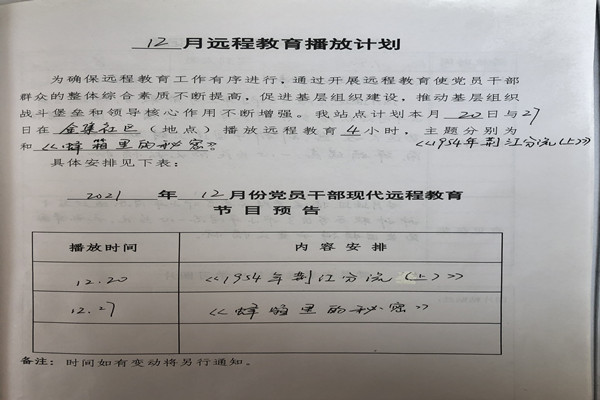 12 月远程教育播放计划
为确保远程教育工作有序进行,通过开展远程教育使党员干部
群众的整体综合素质不断提高,促进基层组织建设,推动基层组织
战斗堡垒和领导核心作用不断增强。我站点计划本月 20 日与 27
日在 金集社区 (地点)播放远程教育 4 小时,主题分别为
和《蜂箱里的秘密》 《1954年荆江分流(上)》
具体安排见下表:
2021 年 12 月份党员干部现代远程教育
节目预告
播放时间 内容安排
12.20 《1954年荆江分流(上)》
12.27 《蜂箱里的秘密》
备注:时间如有变动将另行通知。